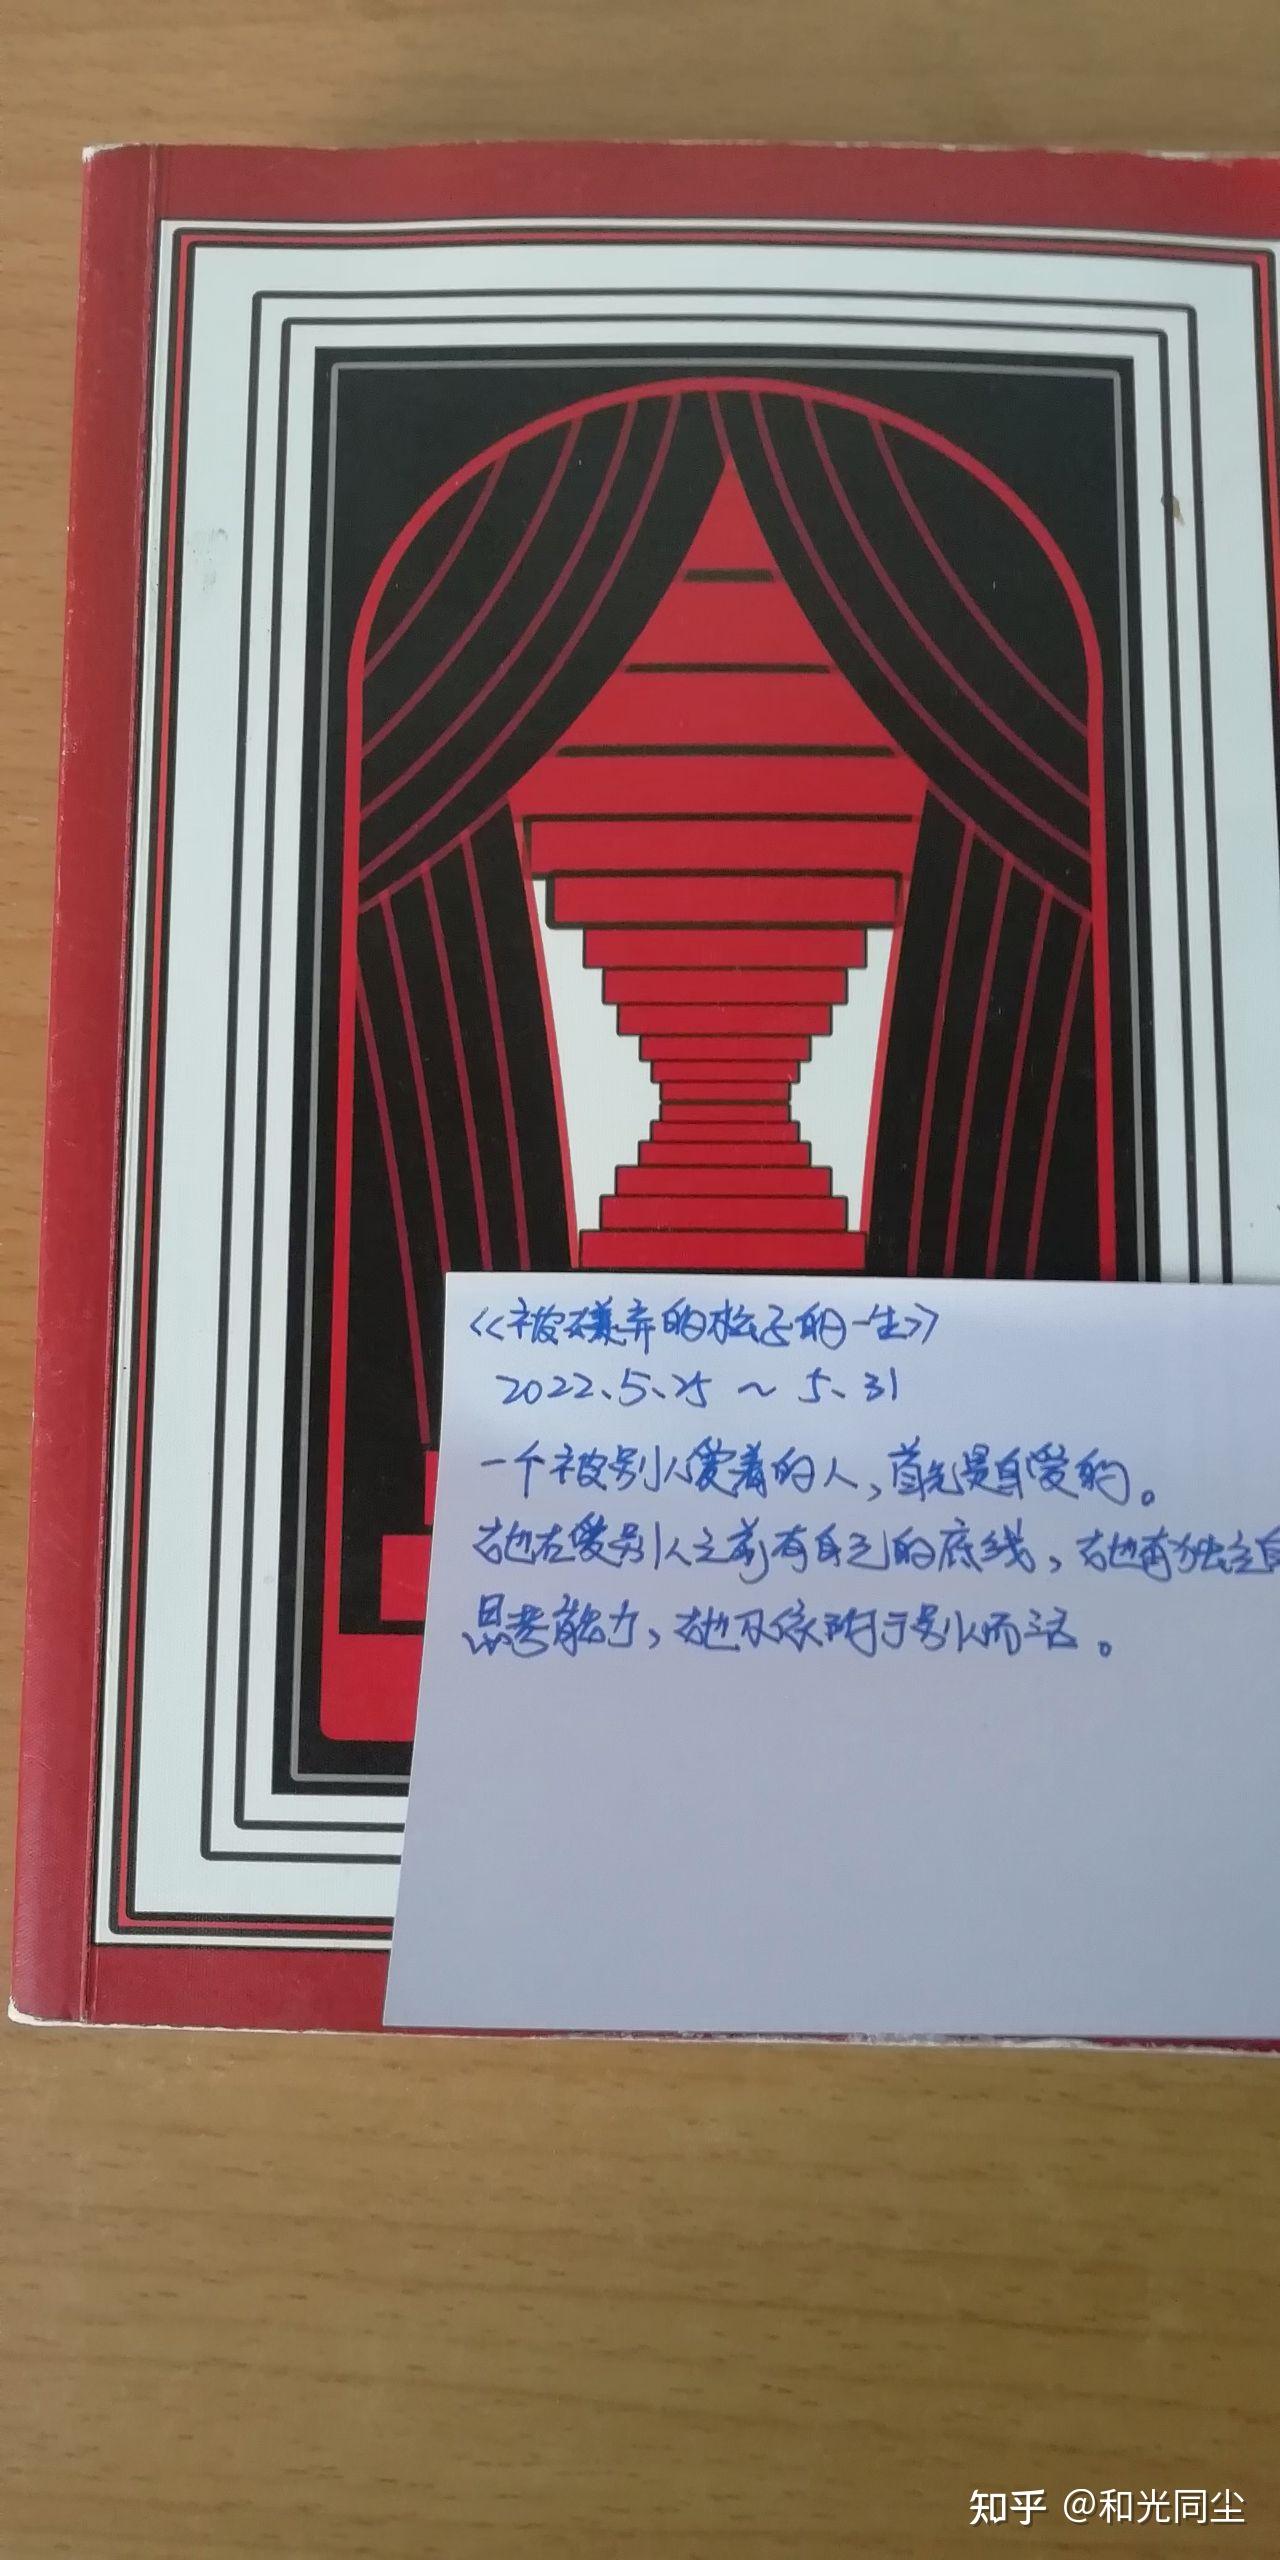 《被嫌弃的松子的一生》
2022、5、25 ~ 5、31
一个被别人爱着的人，首先是自爱的。
她在爱别人之前有自己的底线，她有独立自
思考能力，她不依附于别人而活。
知乎 @和光同尘